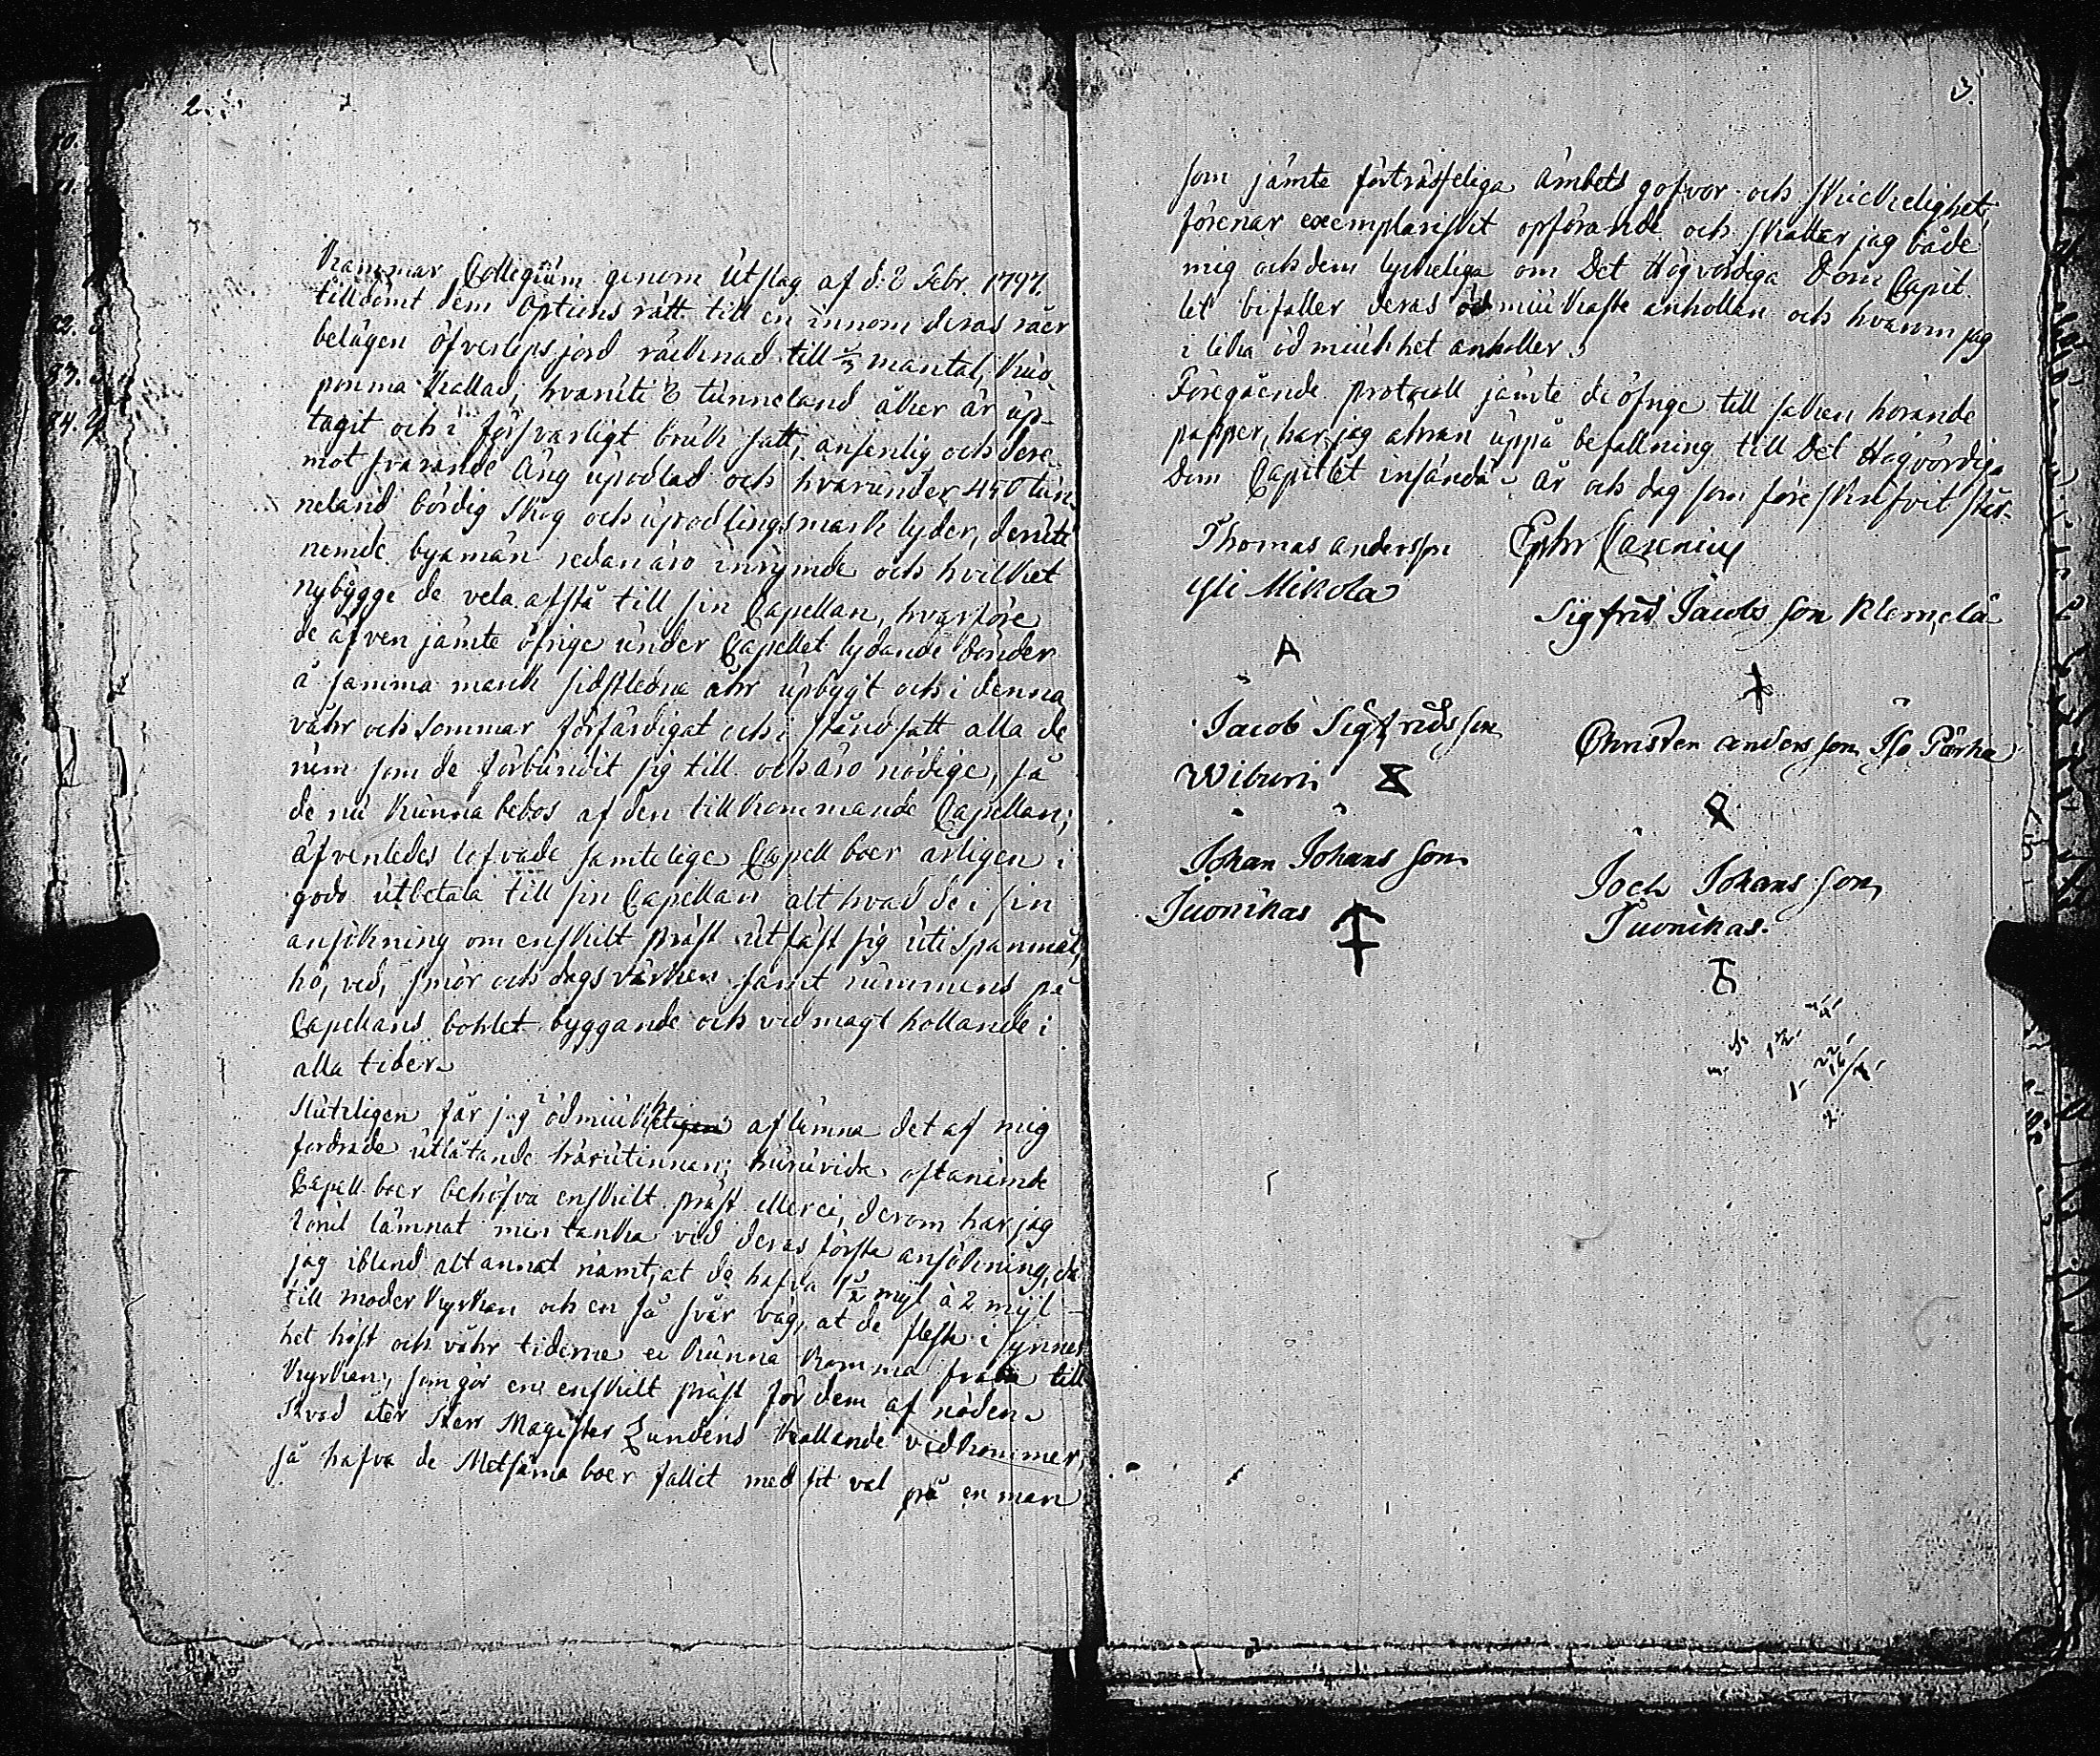 2.
Kammar Collegium genom Utslag af d: 8 Febr. 1797.
tilldömt dem options rätt till en innom deras råer
belägen öfverlops jord räcknad till mantal,
kallad, hvaruti 8 tunneland åker är up-
tagit och i försvarligt bruk satt, ansenlig och dere-
mot svarande Äng uprodlad och hvarunder 450 tun-
neland bördig skog och uprodlings mark lyder, deruti
nemde byamän redan äro inrymde och hvilket
nybygge de vela afstå till sin Capellan, hvarföre
de äfven jämte öfrige under Capellet lydande bönder
å samma mark sidstledne åhr upbygt och i denna
våhr och sommar förfärdigat och i stånd satt alla de
rum som de förbundit sig till och äro nödige, så
de nu kunna bebos af den tillkommande Capellan;
äfvenledes lofvade samtelige Capell boer årligen i
godo utbetala till sin Capellan alt hvad de i sin
ansökning om enskilt präst utfäst sig uti Spanmål,
hö, ved, smör och dags värken samt rummens på
Capellans bohlet byggande och vid magt hollande i
alla tider.
Sluteligen får jag ödmiukt aflemna det af mig
fordrade utlåtande härutinnan; huruvida oftanemde
Capell boer behöfva enskilt präst eller ei, derom har jag
lämnat min tanka vid deras första ansökning, då
jag ibland alt annat nämt, at de hafva 1½ mijl à 2 mijl
till moder kyrkan och en så svår väg, at de fleste i synner-
het höst och våhr tiderne ei kunna komma fram till
kyrkan, som gör en enskilt präst för dem af nöden.
Hvad åter Herr Magister Lundens kallande vidkommer,
så hafva de Metsäma boer fallit med sit val på en man
3.
som jämte förträffeliga ämbets gofvor och skickelighet,
förenar exemplariskt opförande och skattar jag både
mig och dem lyckeliga om Det Högvördiga Dom Capit-
let bifaller deras ödmiukaste anhollan och hvarom jag
i lika ödmiukhet anholler.
Föregående protocoll jämte de öfrige till saken hörande
papper, har jag ahran uppå befallning till Det Högvördiga
Dom Capitlet insända. År och dag som föreskrifvit står.
Thomas andersson
Yli Mikola
Ephr Caxenius
Sigfrid Jacobs son Klemelä
A
Jacob Sigfrids son
Wiburi
Christer anders son Iso Pärha
Johan Johans son
Juonikas
Joch Johans son
Juonikas.